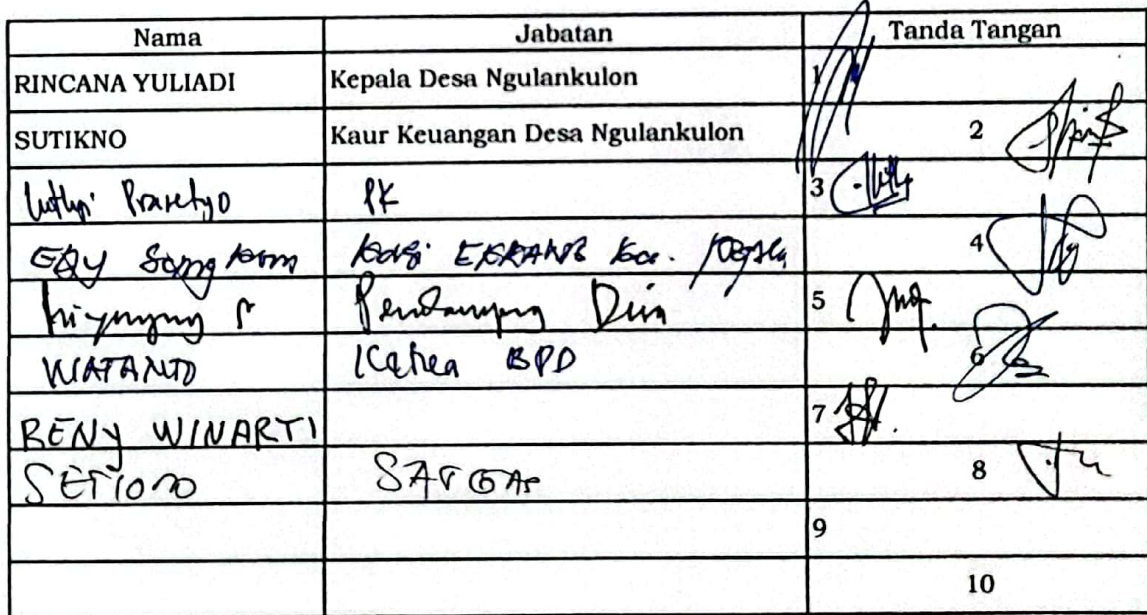 Nama Jabatan Tanda Tangan
RINCANA YULIADI Kepala Desa Ngulankulon 1
SUTIKNO Kaur Keuangan Desa Ngulankulon 2
Prasetyo PK 3
4
Pendamping 5
WATANTO Ketua BPD 6
RENY WINARTI 7
SETIONO SATGAS 8
9
10